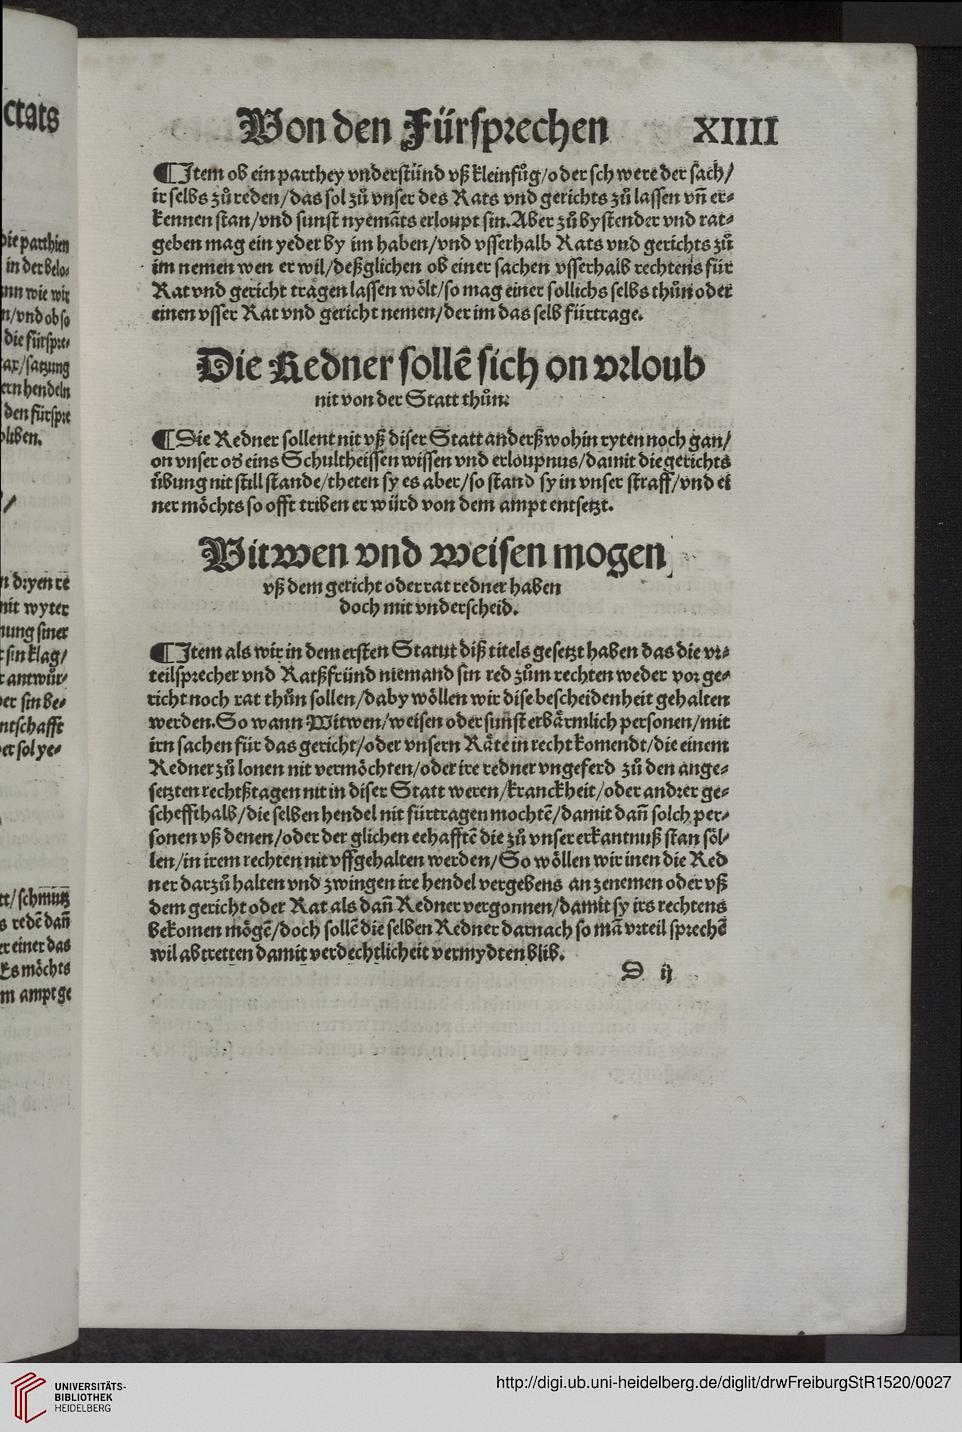 ctats
die parthien
in der belo⸗
ann wie wir
n/vnd ob so
die fürspre⸗
tax/satzung
ern hendeln
den fürspre
bliben.
n dryen re
mit wyter
nung siner
r sin klag/
r antwůr⸗
der sin be⸗
ntschafft
er sol ye⸗
tt/schmütz
s redē dañ
er einer das
Es möchts
m ampt ge
Von den Fürsprechen XIIII
¶ Item ob ein parthey vnderstünd vß kleinfůg/oder schwere der sach/
ir selbs zů reden/das sol zů vnser des Rats vnd gerichts zů lassen vñ er⸗
kennen stan/vnd sunst nyemāts erloupt sin. Aber zů bystender vnd rat⸗
geben mag ein yeder by im haben/vnd vsserhalb Rats vnd gerichts zů
im nemen wen er wil/deßglichen ob einer sachen vsserhalb rechtens für
Rat vnd gericht tragen lassen wölt/so mag einer sollichs selbs thůn oder
einen vsser Rat vnd gericht nemen/der im das selb fürtrage.
Die Redner sollē sich on vrloub
nit von der Statt thůn:
¶ Die Redner sollent nit vß diser Statt anderßwohin ryten noch gan/
on vnser od̕ eins Schultheissen wissen vnd erloupnus/damit die gerichts
übung nit still stande/theten sy es aber/so stand sy in vnser straff/vnd ei
ner möchts so offt triben er würd von dem ampt entsetzt.
Witwen vnd weisen mogen
vß dem gericht oder rat redner haben
doch mit vnderscheid.
¶ Item als wir in dem ersten Statut diß titels gesetzt haben das die vr⸗
teilsprecher vnd Ratßfründ niemand sin red zům rechten weder vor ge⸗
richt noch rat thůn sollen/daby wöllen wir dise bescheidenheit gehalten
werden. So wann Witwen/weisen oder sunst erbärmlich personen/mit
irn sachen für das gericht/oder vnsern Räte in recht komendt/die einem
Redner zů lonen nit vermöchten/oder ire redner vngeferd zů den ange⸗
setzten rechtßtagen nit in diser Statt weren/kranckheit/oder andrer ge⸗
scheffthalb/die selben hendel nit fürtragen mochtē/damit dañ solch per⸗
sonen vß denen/oder der glichen eehafftē die zů vnser erkantnuß stan söl⸗
len/in irem rechten nit vffgehalten werden/So wöllen wir inen die Red
ner darzů halten vnd zwingen ire hendel vergebens an zenemen oder vß
dem gericht oder Rat als dañ Redner vergonnen/damit sy irs rechtens
bekomen mögē/doch sollē die selben Redner darnach so mā vrteil sprechē
wil abtretten damit verdechtlicheit vermydten blib.
D ij
UNIVERSITÄTS-
BIBLIOTHEK
HEIDELBERG
http://digi.ub.uni-heidelberg.de/diglit/drwFreiburgStR1520/0027